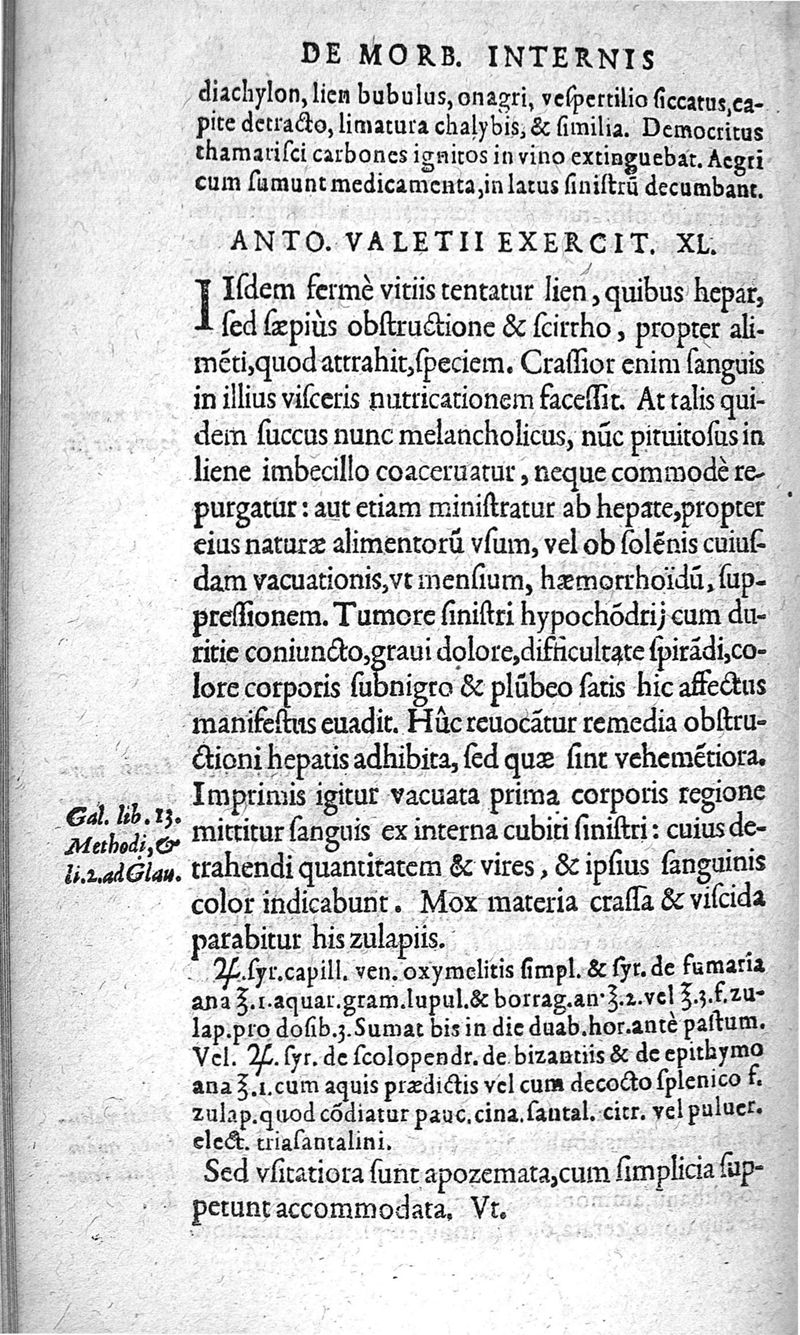 DE MORB. INTERNIS
diachylon, lien bubulus, onagri, veſpertilio ſiccatus, ca-
pite detracto, limatura chalybis, & ſimilia. Democritus
thamariſci carbones ignitos in vino extinguebat. Aegri
cum ſumunt medicamenta, in latus ſiniſtrũ decumbant.
ANTO. VALETII EXERCIT. XL.
IIſdem fermè vitiis tentatur lien, quibus hepar,
ſed ſæpiùs obſtructione & ſcirrho, propter ali-
mẽti, quod attrahit, ſpeciem. Craſſior enim ſanguis
in illius viſceris nutricationem faceſſit. At talis qui-
dem ſuccus nunc melancholicus, nũc pituitoſus in
liene imbecillo coaceruatur, neque commodè re-
purgatur: aut etiam miniſtratur ab hepate, propter
eius naturæ alimentorũ vſum, vel ob ſolẽnis cuiuſ-
dam vacuationis, vt menſium, hæmorrhoïdũ, ſup-
preſſionem. Tumore ſiniſtri hypochõdrij cum du-
ritie coniuncto, graui dolore, difficultate ſpirãdi, co-
lore corporis ſubnigro & plũbeo ſatis hic affectus
manifeſtus euadit. Hûc reuocãtur remedia obſtru-
ctioni hepatis adhibita, ſed quæ ſint vehemẽtiora.
Imprimis igitur vacuata prima corporis regione
mittitur ſanguis ex interna cubiti ſiniſtri: cuius de-
trahendi quantitatem & vires, & ipſius ſanguinis
color indicabunt. Mox materia craſſa & viſcida
parabitur his zulapiis.
Gal. lib. 13.
Methodi, &
li. 2. ad Glau.
℞. ſyr. capill. ven. oxymelitis ſimpl. & ſyr. de fumaria
ana ℥. 1. aquar. gram. lupul. & borrag. an. ℥. 2. vel ℥. 3. f. zu-
lap. pro doſib. 3. Sumat bis in die duab. hor. antè paſtum.
Vel. ℞. ſyr. de ſcolopendr. de bizantiis & de epithymo
ana ℥. 1. cum aquis prædictis vel cum decocto ſplenico f.
zulap. quod cõdiatur pauc. cina. ſantal. citr. vel puluer.
elect. triaſantalini.
Sed vſitatiora ſunt apozemata, cum ſimplicia ſup-
petunt accommodata. Vt.